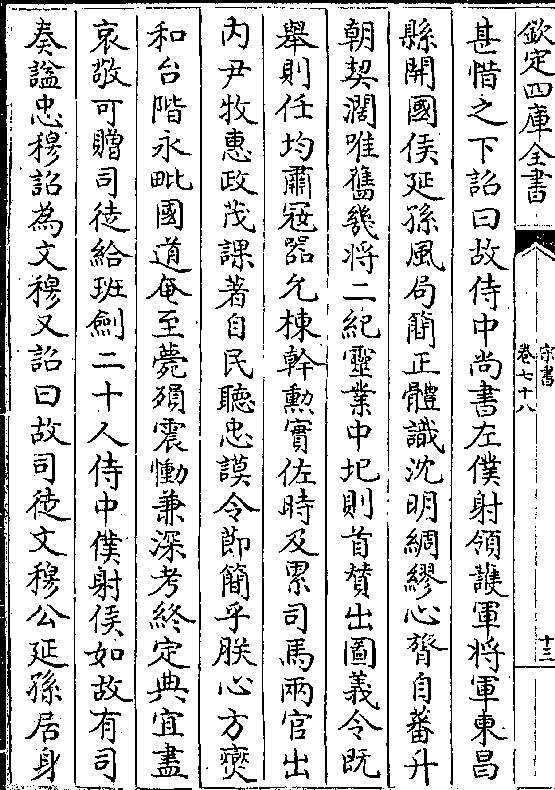 欽定四庫全書
宋書
卷七十八
十三
甚惜之下詔曰故侍中尚書左僕射領護軍將軍東昌
縣開國侯延孫風局簡正體識沈明綢繆心膂自蕃升
朝契濶唯舊幾將二紀靈業中圮則首贊出圖義令既
舉則任均蕭寇器允棟幹勲實佐時及累司馬兩官出
内尹牧惠政茂課著自民聽忠謨令節簡乎朕心方燮
和台階永毗國道奄至薨殞震慟兼深考終定典宜盡
哀敬可贈司徒給班劒二十人侍中僕射侯如故有司
奏諡忠穆詔為文穆又詔曰故司徒文穆公延孫居身